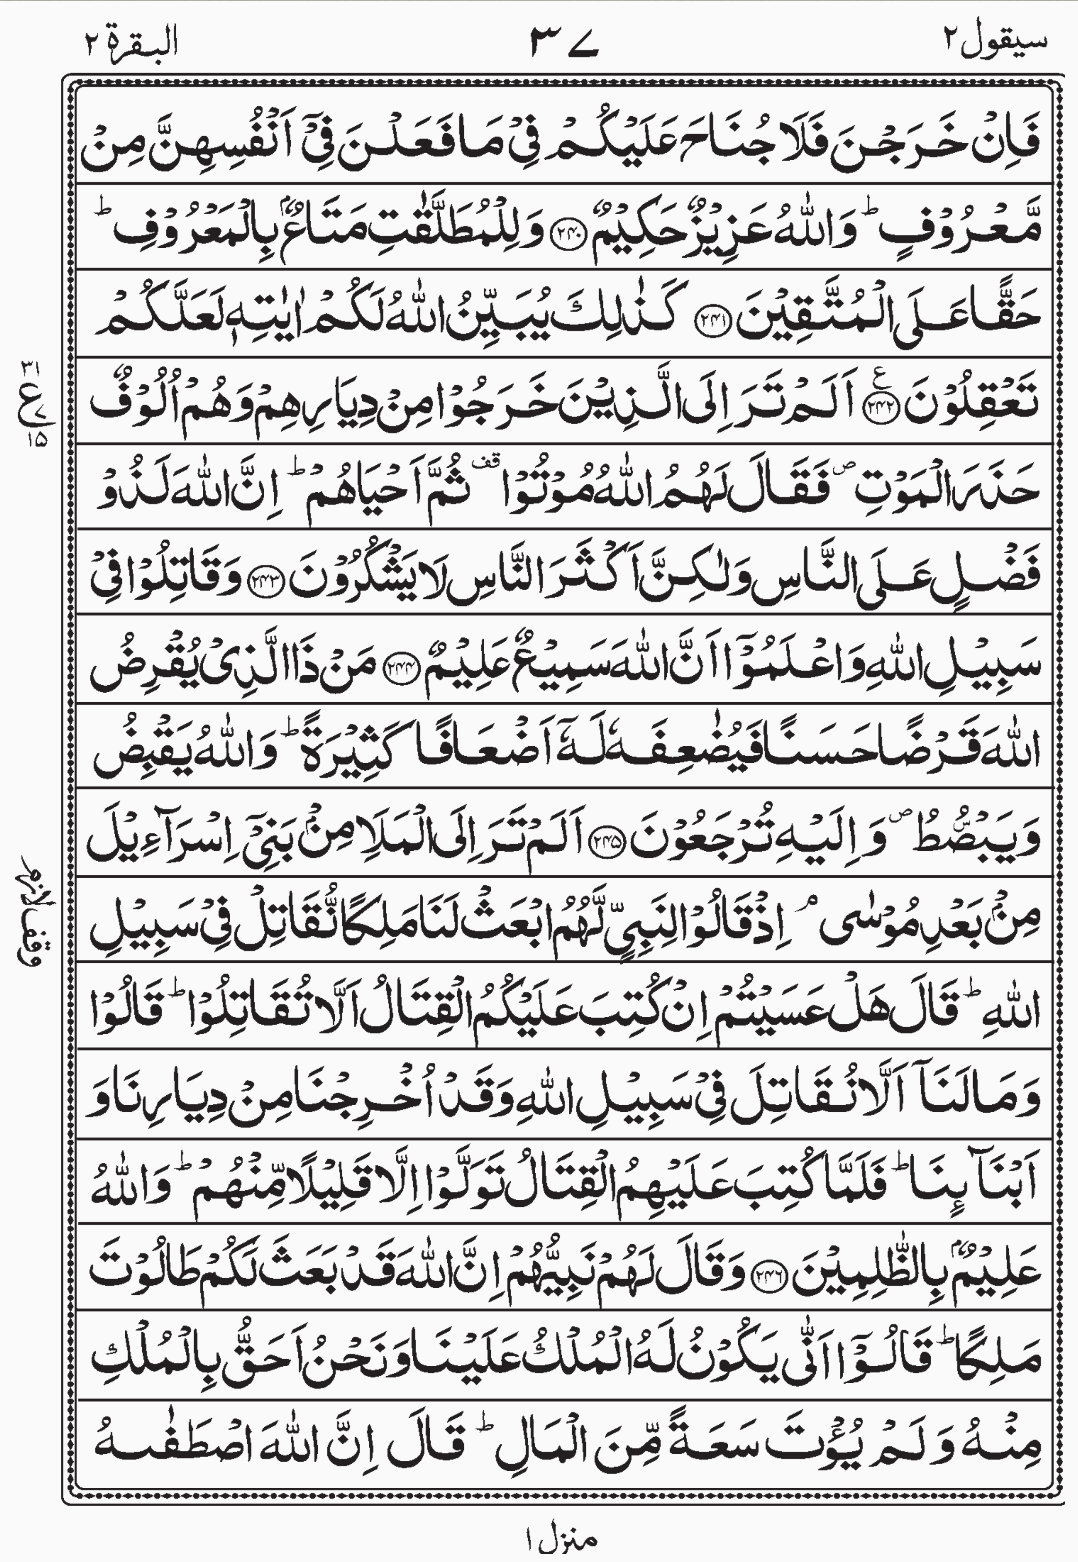 سيقول ٢
٣٧
البقرة ٢
فَاِنْ خَرَجْنَ فَلَا جُنَاحَ عَلَيْكُمْ فِيْ مَا فَعَلْنَ فِيْٓ اَنْفُسِهِنَّ مِنْ
مَّعْرُوْفٍ ؕ وَاللّٰهُ عَزِيْزٌ حَكِيْمٌ ﴿۲۴۰﴾ وَلِلْمُطَلَّقٰتِ مَتَاعٌۢ بِالْمَعْرُوْفِ ؕ
حَقًّا عَلَى الْمُتَّقِيْنَ ﴿۲۴۱﴾ كَذٰلِكَ يُبَيِّنُ اللّٰهُ لَكُمْ اٰيٰتِهٖ لَعَلَّكُمْ
تَعْقِلُوْنَ ﴿۲۴۲﴾ ع اَلَمْ تَرَ اِلَى الَّذِيْنَ خَرَجُوْا مِنْ دِيَارِهِمْ وَهُمْ اُلُوْفٌ
٣١
ع
٧
١٥
حَذَرَ الْمَوْتِ ص فَقَالَ لَهُمُ اللّٰهُ مُوْتُوْا قف ثُمَّ اَحْيَاهُمْ ؕ اِنَّ اللّٰهَ لَذُوْ
فَضْلٍ عَلَى النَّاسِ وَلٰكِنَّ اَكْثَرَ النَّاسِ لَا يَشْكُرُوْنَ ﴿۲۴۳﴾ وَقَاتِلُوْا فِيْ
سَبِيْلِ اللّٰهِ وَاعْلَمُوْٓا اَنَّ اللّٰهَ سَمِيْعٌ عَلِيْمٌ ﴿۲۴۴﴾ مَنْ ذَا الَّذِيْ يُقْرِضُ
اللّٰهَ قَرْضًا حَسَنًا فَيُضٰعِفَهٗ لَهٗٓ اَضْعَافًا كَثِيْرَةً ؕ وَاللّٰهُ يَقْبِضُ
وَيَبْصُۜطُ ص وَاِلَيْهِ تُرْجَعُوْنَ ﴿۲۴۵﴾ اَلَمْ تَرَ اِلَى الْمَلَاِ مِنْۢ بَنِيْٓ اِسْرَآءِيْلَ
وقف لازم
مِنْۢ بَعْدِ مُوْسٰى ۘ اِذْ قَالُوْا لِنَبِيٍّ لَّهُمُ ابْعَثْ لَنَا مَلِكًا نُّقَاتِلْ فِيْ سَبِيْلِ
اللّٰهِ ؕ قَالَ هَلْ عَسَيْتُمْ اِنْ كُتِبَ عَلَيْكُمُ الْقِتَالُ اَلَّا تُقَاتِلُوْا ؕ قَالُوْا
وَمَا لَنَآ اَلَّا نُقَاتِلَ فِيْ سَبِيْلِ اللّٰهِ وَقَدْ اُخْرِجْنَا مِنْ دِيَارِنَا وَ
اَبْنَآىِٕنَا ؕ فَلَمَّا كُتِبَ عَلَيْهِمُ الْقِتَالُ تَوَلَّوْا اِلَّا قَلِيْلًا مِّنْهُمْ ؕ وَاللّٰهُ
عَلِيْمٌۢ بِالظّٰلِمِيْنَ ﴿۲۴۶﴾ وَقَالَ لَهُمْ نَبِيُّهُمْ اِنَّ اللّٰهَ قَدْ بَعَثَ لَكُمْ طَالُوْتَ
مَلِكًا ؕ قَالُوْٓا اَنّٰى يَكُوْنُ لَهُ الْمُلْكُ عَلَيْنَا وَنَحْنُ اَحَقُّ بِالْمُلْكِ
مِنْهُ وَلَمْ يُؤْتَ سَعَةً مِّنَ الْمَالِ ؕ قَالَ اِنَّ اللّٰهَ اصْطَفٰىهُ
منزل ١